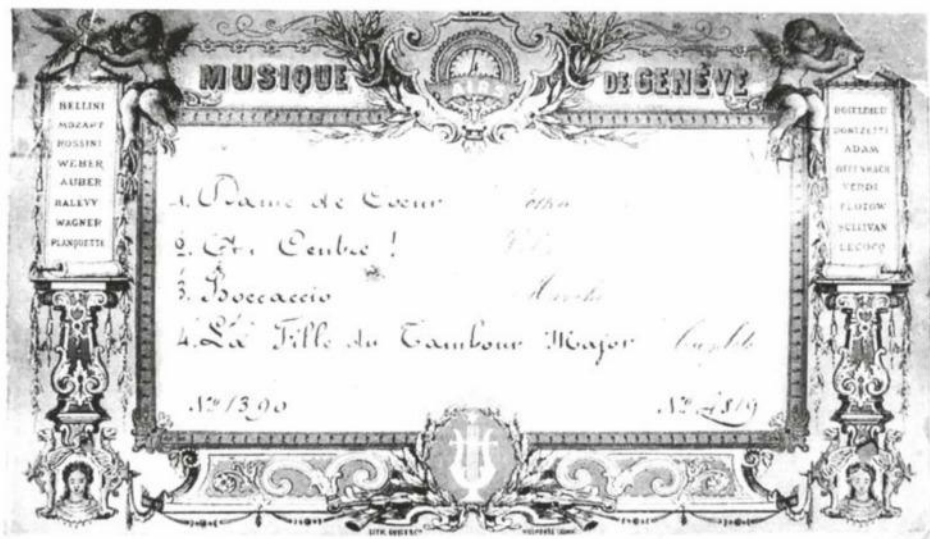 MUSIQUE DE GENÈVE
4 AIRS
BELLINI
MOZART
ROSSINI
WEBER
AUBER
HALEVY
WAGNER
PLANQUETTE
DONIZETTI
ADAM
OFFENBACH
VERDI
FLOTOW
SULLIVAN
LECOCQ
1. Dame de Coeur Polka
2.
3. Boccaccio Marche
4. La Fille du Tambour Major
No 1390
No 4819
LITH.